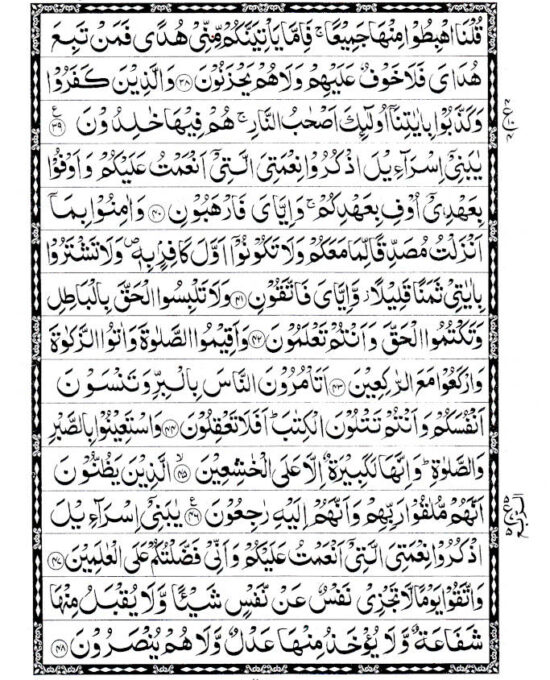 قُلْنَا اهْبِطُوْا مِنْهَا جَمِيْعًا ۚ فَاِمَّا يَاْتِيَنَّكُمْ مِّنِّىْ هُدًى فَمَنْ تَبِعَ
هُدَاىَ فَلَا خَوْفٌ عَلَيْهِمْ وَلَا هُمْ يَحْزَنُوْنَ ﴿۳۸﴾ وَالَّذِيْنَ كَفَرُوْا
وَكَذَّبُوْا بِاٰيٰتِنَآ اُولٰٓئِكَ اَصْحٰبُ النَّارِ ۚ هُمْ فِيْهَا خٰلِدُوْنَ ﴿۳۹﴾ ع
يٰبَنِىْٓ اِسْرَآءِيْلَ اذْكُرُوْا نِعْمَتِىَ الَّتِىْٓ اَنْعَمْتُ عَلَيْكُمْ وَاَوْفُوْا
بِعَهْدِىْٓ اُوْفِ بِعَهْدِكُمْ ۚ وَاِيَّاىَ فَارْهَبُوْنِ ﴿۴۰﴾ وَاٰمِنُوْا بِمَآ
اَنْزَلْتُ مُصَدِّقًا لِّمَا مَعَكُمْ وَلَا تَكُوْنُوْٓا اَوَّلَ كَافِرٍۭ بِهٖ ۪ وَلَا تَشْتَرُوْا
بِاٰيٰتِىْ ثَمَنًا قَلِيْلًا ۡ وَّاِيَّاىَ فَاتَّقُوْنِ ﴿۴۱﴾ وَلَا تَلْبِسُوا الْحَقَّ بِالْبَاطِلِ
وَتَكْتُمُوا الْحَقَّ وَاَنْتُمْ تَعْلَمُوْنَ ﴿۴۲﴾ وَاَقِيْمُوا الصَّلٰوةَ وَاٰتُوا الزَّكٰوةَ
وَارْكَعُوْا مَعَ الرّٰكِعِيْنَ ﴿۴۳﴾ اَتَاْمُرُوْنَ النَّاسَ بِالْبِرِّ وَتَنْسَوْنَ
اَنْفُسَكُمْ وَاَنْتُمْ تَتْلُوْنَ الْكِتٰبَ ؕ اَفَلَا تَعْقِلُوْنَ ﴿۴۴﴾ وَاسْتَعِيْنُوْا بِالصَّبْرِ
وَالصَّلٰوةِ ؕ وَاِنَّهَا لَكَبِيْرَةٌ اِلَّا عَلَى الْخٰشِعِيْنَ ﴿۴۵﴾ الَّذِيْنَ يَظُنُّوْنَ
اَنَّهُمْ مُّلٰقُوْا رَبِّهِمْ وَاَنَّهُمْ اِلَيْهِ رٰجِعُوْنَ ﴿۴۶﴾ ع يٰبَنِىْٓ اِسْرَآءِيْلَ
اذْكُرُوْا نِعْمَتِىَ الَّتِىْٓ اَنْعَمْتُ عَلَيْكُمْ وَاَنِّىْ فَضَّلْتُكُمْ عَلَى الْعٰلَمِيْنَ ﴿۴۷﴾
وَاتَّقُوْا يَوْمًا لَّا تَجْزِىْ نَفْسٌ عَنْ نَّفْسٍ شَيْئًا وَّلَا يُقْبَلُ مِنْهَا
شَفَاعَةٌ وَّلَا يُؤْخَذُ مِنْهَا عَدْلٌ وَّلَا هُمْ يُنْصَرُوْنَ ﴿۴۸﴾